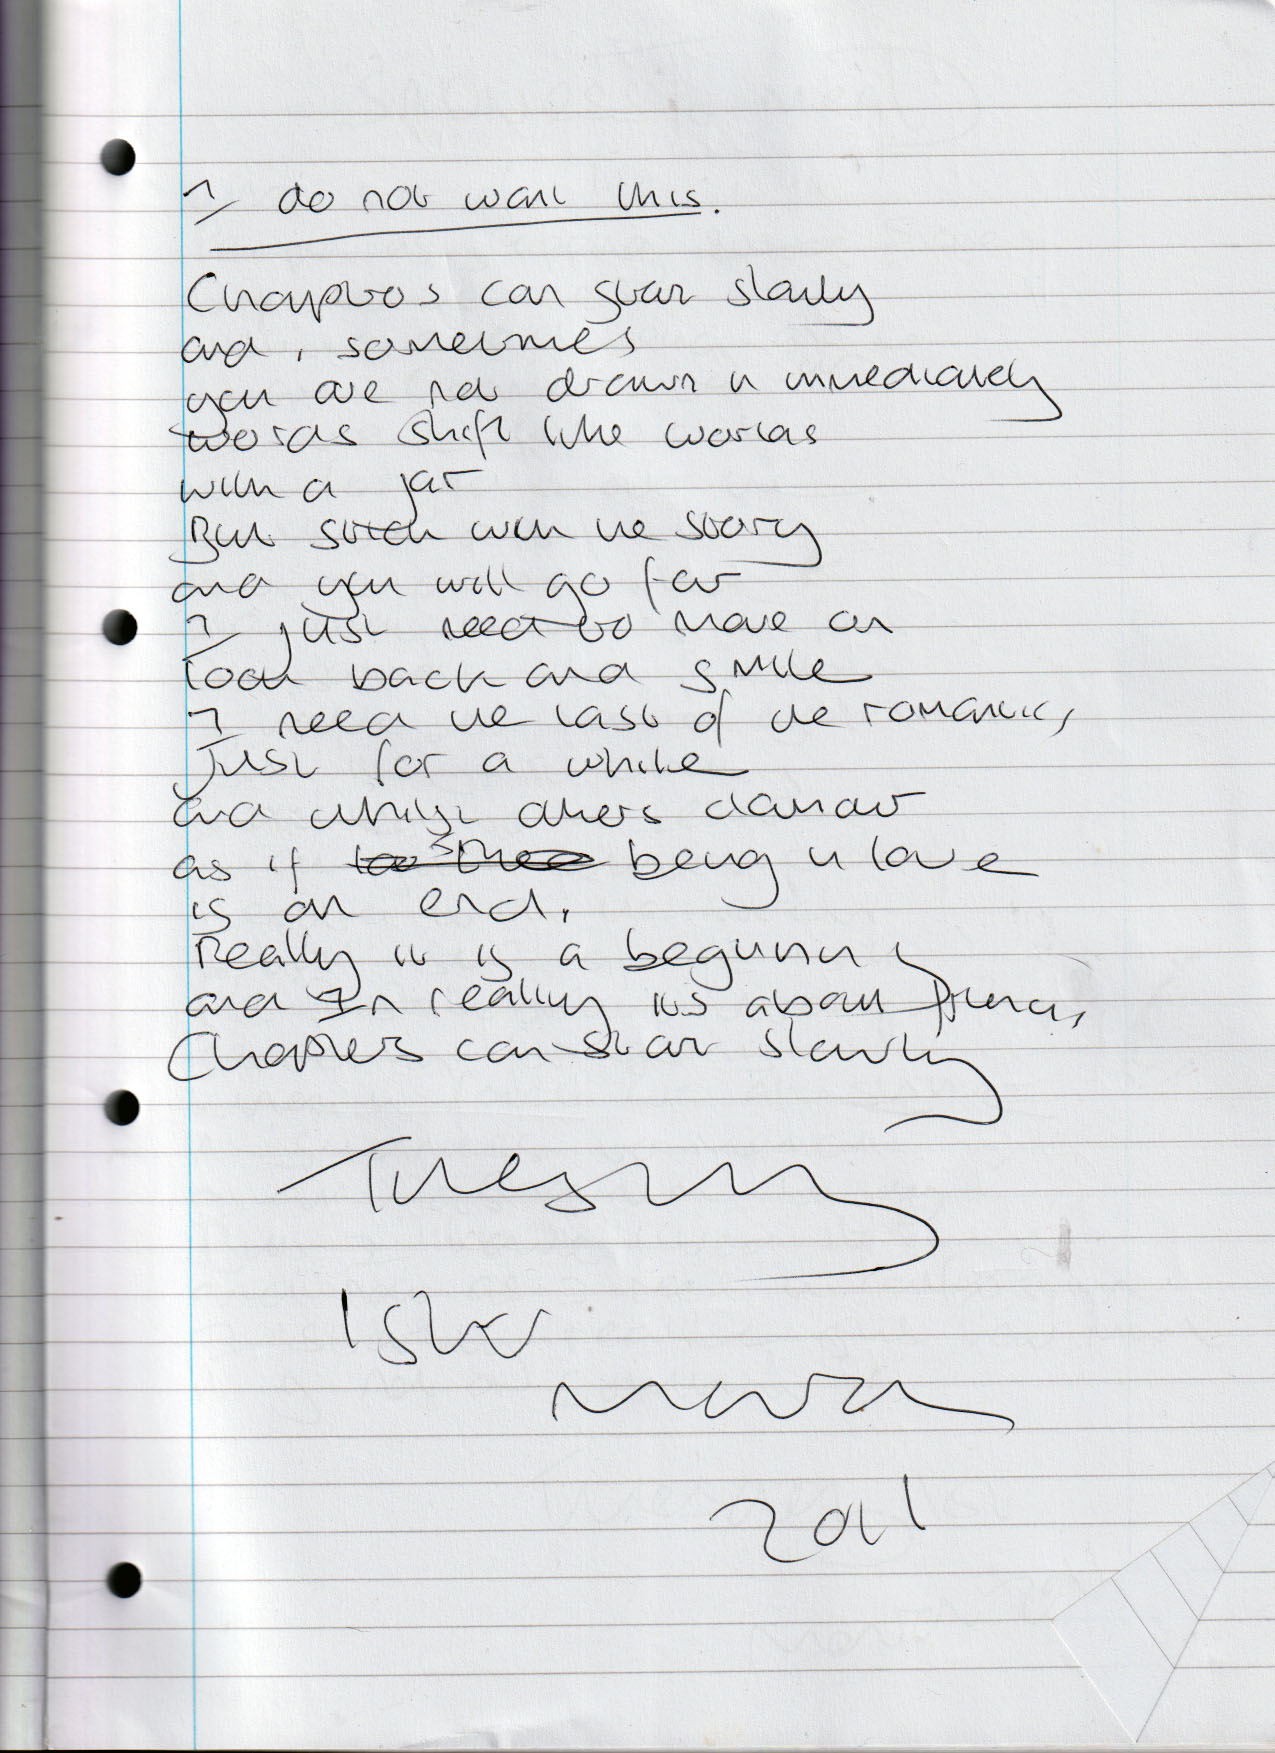 I do not want this.
Chapters can start slowly
and, sometimes
you are not drawn in immediately
words shift like worlds
with a jar
But stick with the story
and you will go far
I just need to move on
look back and smile
I need the last of the romantics,
just for a while
and whilst others clamour
as if being in love
is an end,
Really it is a beginning
and In reality its about
Chapters can start slowly
Tuesday
15th
March
2011